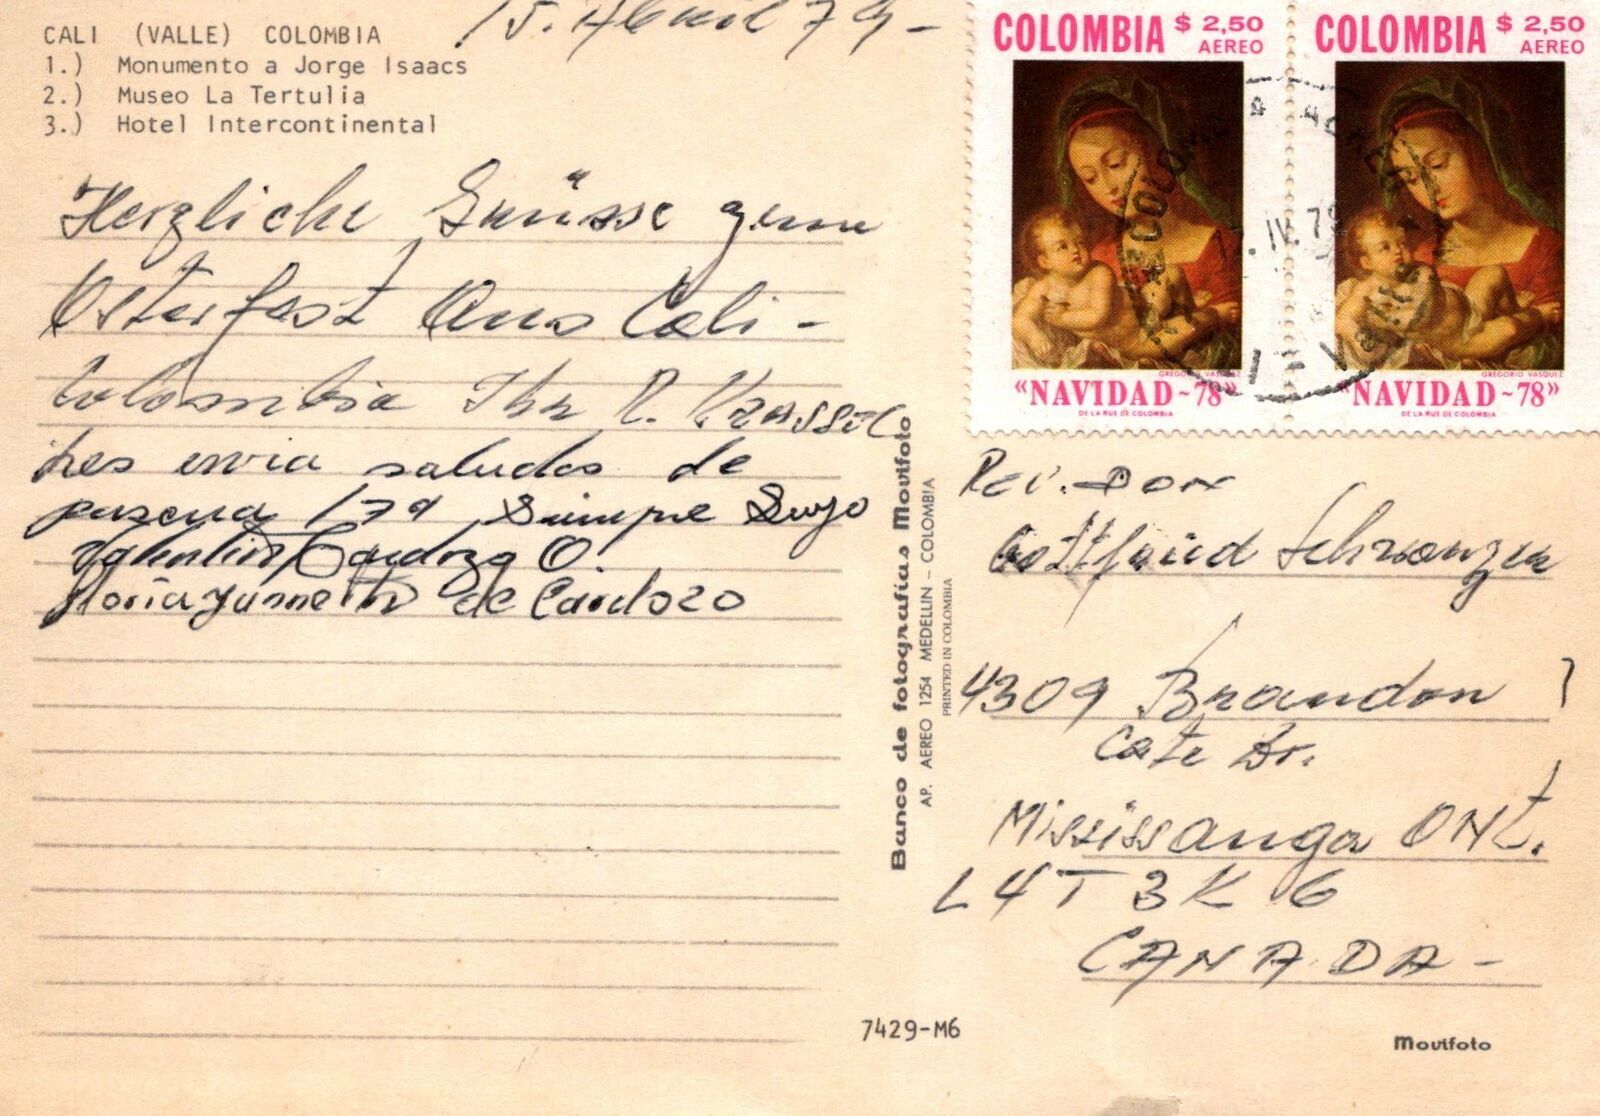 CALI (VALLE) COLOMBIA
1.) Monumento a Jorge Isaacs
2.) Museo La Tertulia
3.) Hotel Intercontinental
15. Abril 79-
Herzliche Grüsse zum
Osterfest Aus Cali-
Colombia Ihr R. Krassel
Les envia saludos de
pascua 179 Siempre Suyo
Valentin Cardozo O.
Gloria Yanneth de Cardozo
COLOMBIA $ 2,50
AEREO
GREGORIO VASQUEZ
“NAVIDAD-78”
DE LA RUE DE COLOMBIA
COLOMBIA $ 2,50
AEREO
GREGORIO VASQUEZ
“NAVIDAD-78”
DE LA RUE DE COLOMBIA
IV.79
Banco de fotografías Movifoto
AP. AEREO 1254 MEDELLIN - COLOMBIA
PRINTED IN COLOMBIA
Rev. Don
Gottfried Schwanzer
4309 Brandon
Gate Dr.
Mississanga ONt.
L4T 3K6
CANADA-
7429-M6
Movifoto